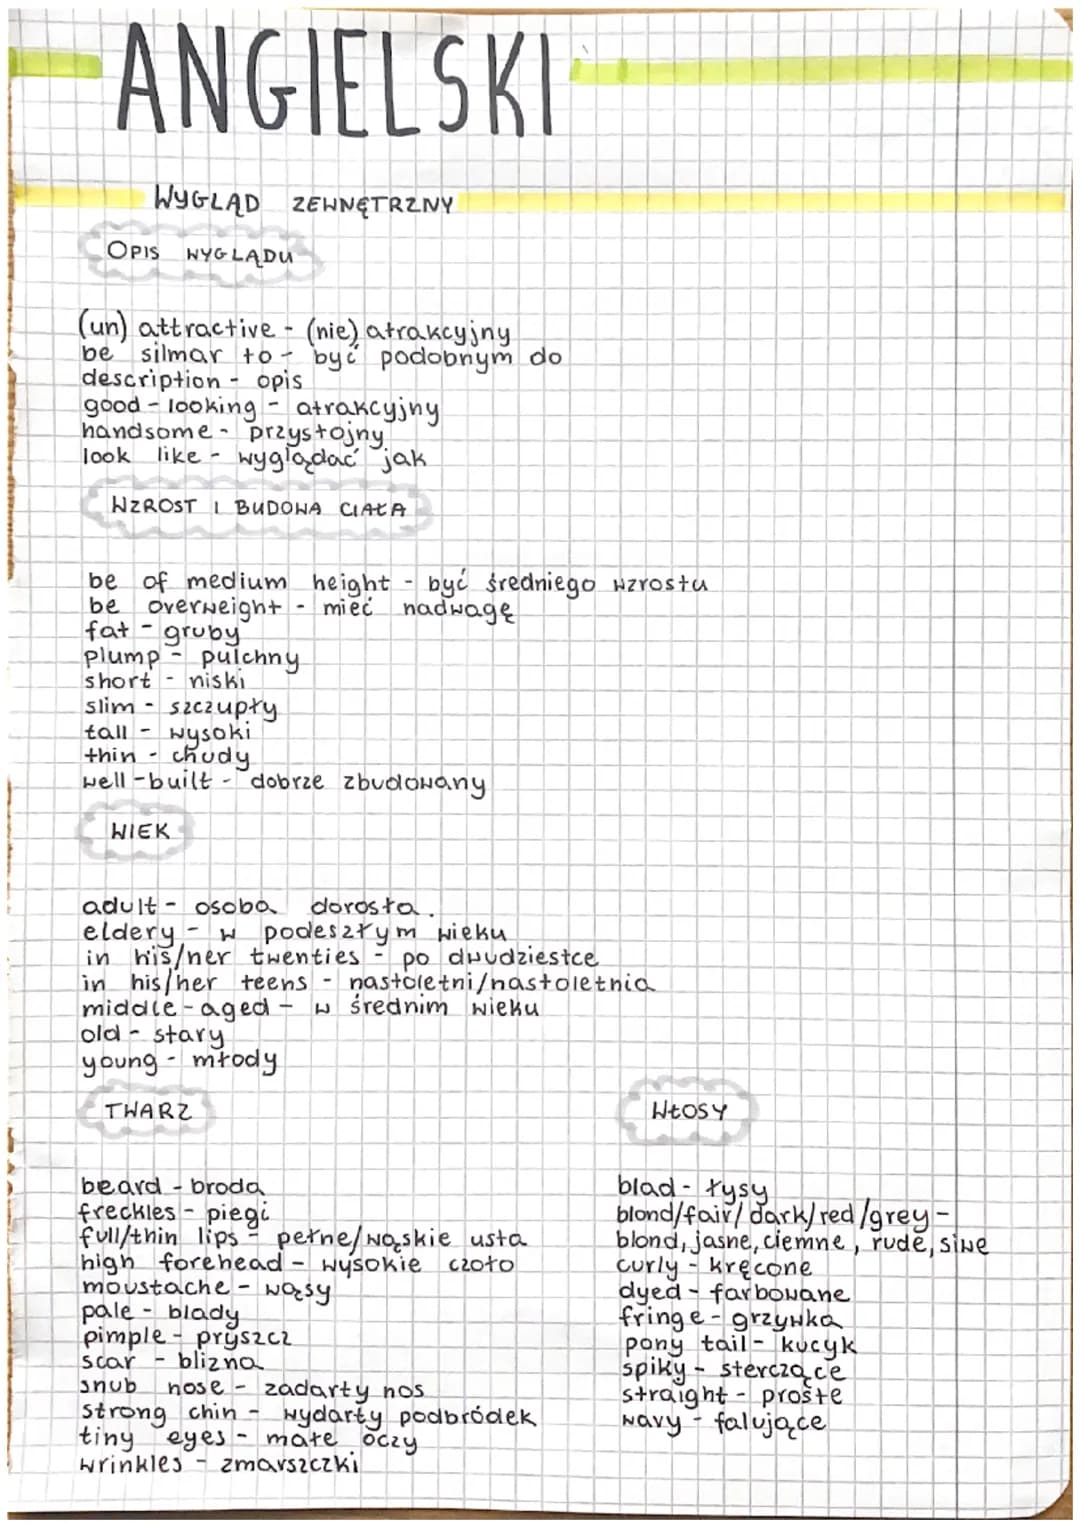 ANGIELSKI
WYGLĄD ZEWNĘTRZNY
OPIS WYGLĄDU
(un) attractive - (nie) atrakcyjny
be silmar to - być podobnym do
description - opis
good - looking - atrakcyjny
handsome - przystojny
look like - wyglądać jak
WZROST I BUDOWA CIAŁA
be of medium height - być średniego wzrostu
be overweight - mieć nadwagę
fat - gruby
plump - pulchny
short - niski
slim - szczupły
tall - wysoki
thin - chudy
well-built - dobrze zbudowany
WIEK
adult - osoba dorosła.
eldery - w podeszłym wieku
in his/her twenties - po dwudziestce
in his/her teens - nastoletni/nastoletnia
middle-aged - w średnim wieku
old - stary
young - młody
TWARZ
beard - broda
freckles - piegi
full/thin lips - pełne/wąskie usta
high forehead - wysokie czoło
moustache - wąsy
pale - blady
pimple - pryszcz
scar - blizna
snub nose - zadarty nos
strong chin - wydarty podbródek
tiny eyes - małe oczy
wrinkles - zmarszczki
WŁOSY
blad - łysy
blond/fair/dark/red/grey -
blond, jasne, ciemne, rude, siwe
curly - kręcone
dyed - farbowane
fringe - grzywka
pony tail - kucyk
spiky - sterczące
straight - proste
wavy - falujące